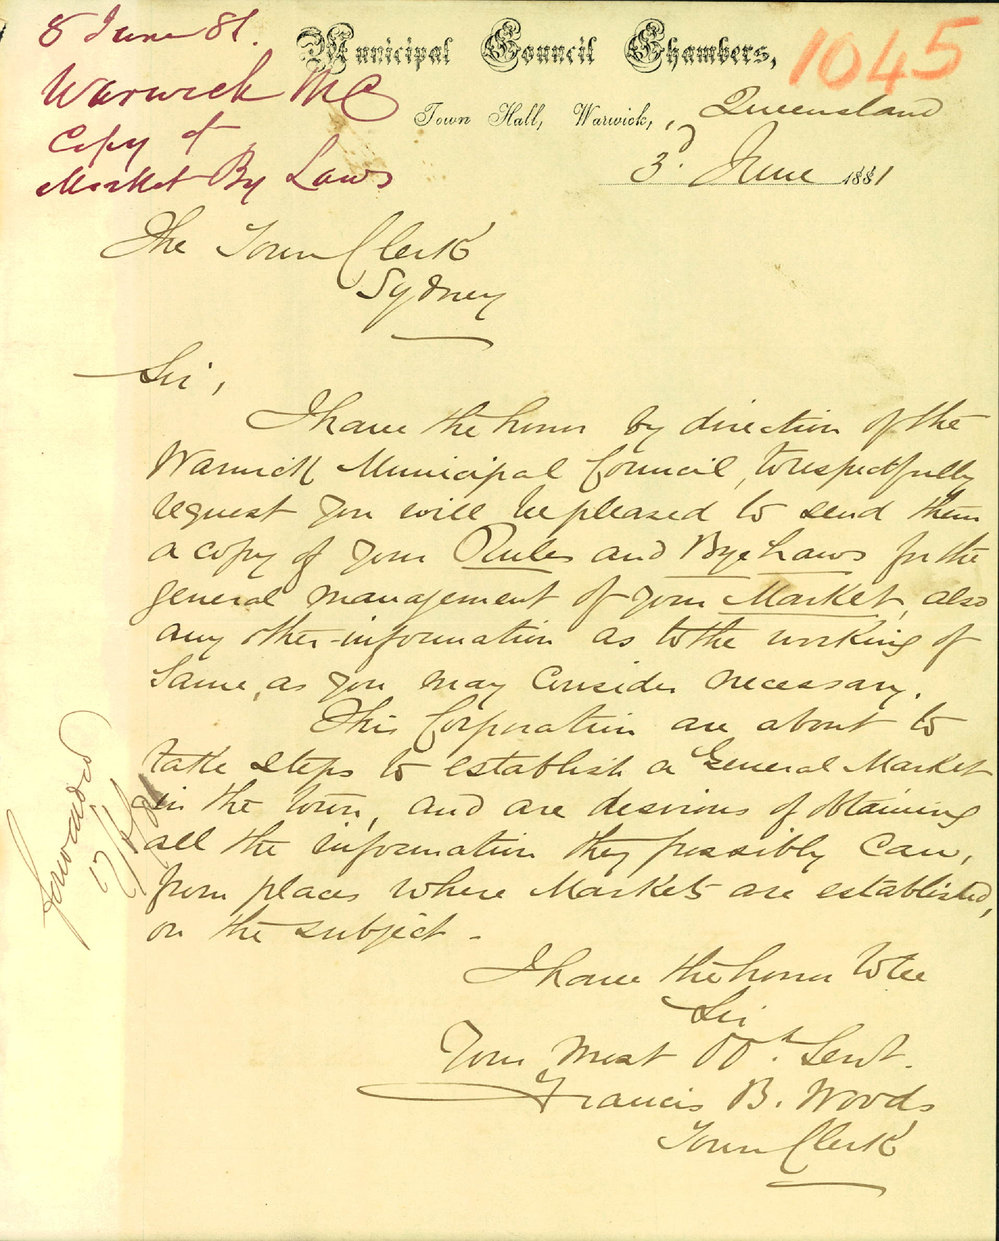 8 June 81.
Warwick MC
Copy of
Market By Laws
Municipal Council Chambers,
1045
Town Hall, Warwick, Queensland
3d. June 1881
The Town Clerk
Sydney
Sir,
I have the honor by direction of the
Warwick Municipal Council, to respectfully
request you will be pleased to send them
a copy of your Rules and Bye Laws for the
general management of your Market, also
any other information as to the working of
Same, as you may Consider necessary.
This Corporation are about to
take steps to establish a General Market
in the town, and are desirous of obtaining
all the information they possibly Can,
from places where Markets are established,
on the subject -
forwarded
I have the honor to be
Sir
Your most Obt. Servt.
Francis B. Woods
Town Clerk